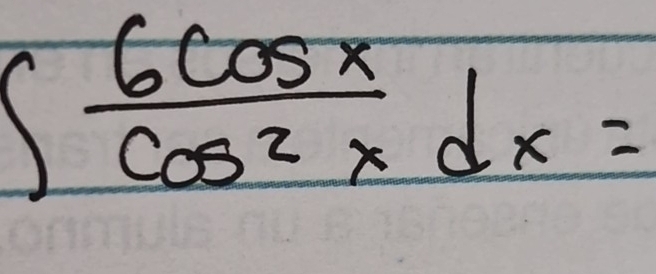 ∫ 6 Cos x / Cos² x dx =